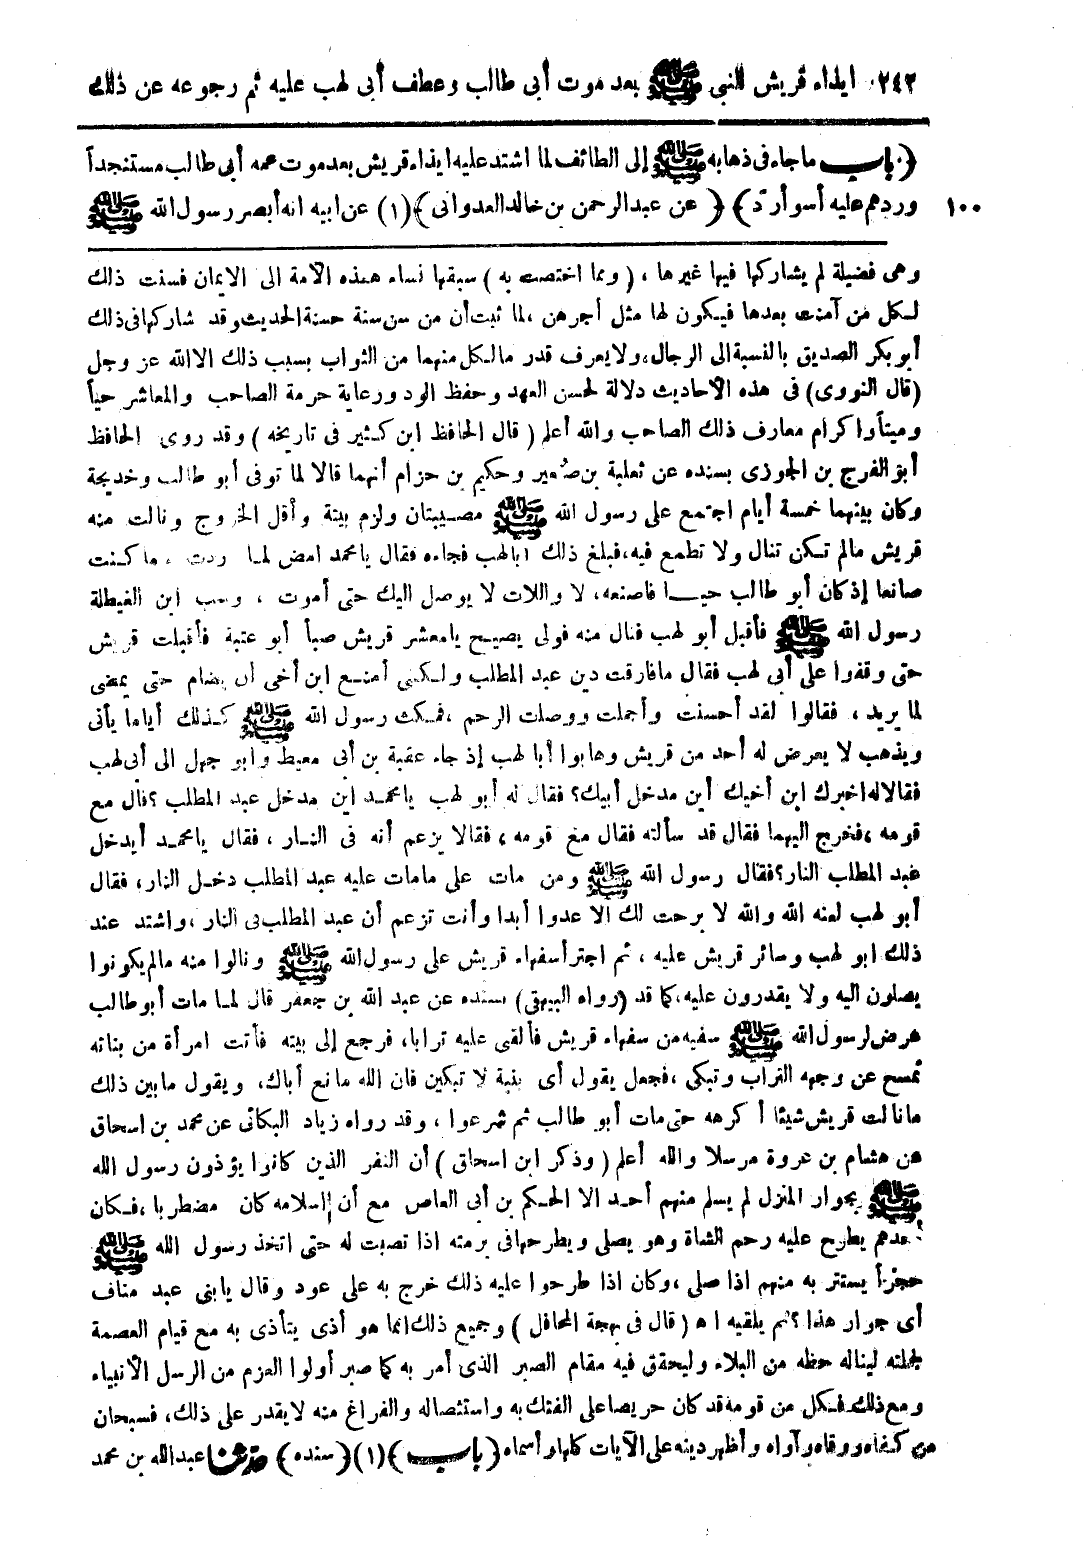 ٢٤٢ ايذاء قريش للنبي ﷺ بعد موت أبى طالب وعطف أبى لهب عليه ثم رجوعه عن ذلك
﴿باب ماجاء فى ذهابه ﷺ إلى الطائف لما اشتد عليه ايذاء قريش بعد موت عمه أبى طالب مستنجداً
١٠٠ وردهم عليه أسوأ رَدّ﴾ ﴿عن عبدالرحمن بن خالد العدوانى﴾ (١) عن ابيه انه أبصر رسول الله ﷺ
وهى فضيلة لم يشاركها فيها غيرها ، (ومما اختصت به) سبقها نساء هذه الأمة الى الايمان فسنت ذلك
لكل من آمنت بعدها فيكون لها مثل أجرهن ، لما ثبت أن من سن سنة حسنة الحديث وقد شاركها فى ذلك
أبو بكر الصديق بالنسبة الى الرجال، ولا يعرف قدر ما لكل منهما من الثواب بسبب ذلك الا الله عز وجل
(قال النووى) فى هذه الأحاديث دلالة لحسن العهد وحفظ الود ورعاية حرمة الصاحب والمعاشر حياً
وميتاً واكرام معارف ذلك الصاحب والله أعلم (قال الحافظ ابن كثير فى تاريخه) وقد روى الحافظ
أبو الفرج بن الجوزى بسنده عن ثعلبة بن صُعير وحكيم بن حزام أنهما قالا لما توفى أبو طالب وخديجة
وكان بينهما خمسة أيام اجتمع على رسول الله ﷺ مصيبتان ولزم بيته وأقل الخروج ونالت منه
قريش مالم تكن تنال ولا تطمع فيه، فبلغ ذلك أبا لهب فجاءه فقال يامحمد امض لما ردت ، ما كنت
صانعا إذ كان أبو طالب حيا فاصنعه، لا واللات لا يوصل اليك حتى أموت ، وسب ابن الغيطلة
رسول الله ﷺ فأقبل أبو لهب فنال منه فولى يصيح يامعشر قريش صبأ أبو عتبة فأقبلت قريش
حتى وقفوا على أبى لهب فقال مافارقت دين عبد المطلب ولكنى أمنع ابن أخى أن يضام حتى يمضى
لما يريد ، فقالوا لقد أحسنت وأجملت ووصلت الرحم ، فمكث رسول الله ﷺ كذلك أياما يأتى
ويذهب لا يعرض له أحد من قريش وهابوا أبا لهب إذ جاء عقبة بن أبى معيط وابو جهل الى أبى لهب
فقالا له اخبرك ابن أخيك أين مدخل أبيك؟ فقال له أبو لهب يامحمد اين مدخل عبد المطلب ؟ قال مع
قومه ، فخرج اليهما فقال قد سألته فقال مع قومه ، فقالا يزعم أنه فى النار ، فقال يامحمد أيدخل
عبد المطلب النار؟ فقال رسول الله ﷺ ومن مات على مامات عليه عبد المطلب دخل النار، فقال
أبو لهب لعنه الله والله لا برحت لك الا عدوا أبدا وأنت تزعم أن عبد المطلب فى النار ، واشتد عند
ذلك ابو لهب وسائر قريش عليه ، ثم اجترأ سفهاء قريش على رسول الله ﷺ ونالوا منه مالم يكونوا
يصلون اليه ولا يقدرون عليه، كما قد (رواه البيهقى) بسنده عن عبد الله بن جعفر قال لما مات أبو طالب
عرض لرسول الله ﷺ سفيه من سفهاء قريش فألقى عليه ترابا، فرجع إلى بيته فأتت امرأة من بناته
تمسح عن وجهه التراب وتبكى ، فجعل يقول أى بنية لا تبكين فان الله مانع أباك، ويقول مابين ذلك
مانالت قريش شيئا أكرهه حتى مات أبو طالب ثم شرعوا ، وقد رواه زياد البكائى عن محمد بن اسحاق
عن هشام بن عروة مرسلا والله أعلم (وذكر ابن اسحاق) أن النفر الذين كانوا يؤذون رسول الله
ﷺ بجوار المنزل لم يسلم منهم أحد الا الحكم بن أبى العاص مع أن إسلامه كان مضطربا ، فكان
أحدهم يطرح عليه رحم الشاة وهو يصلى ويطرحها فى برمته اذا نصبت له حتى اتخذ رسول الله ﷺ
حجراً يستتر به منهم اذا صلى ، وكان اذا طرحوا عليه ذلك خرج به على عود وقال يابنى عبد مناف
أى جوار هذا؟ ثم يلقيه ا ه (قال فى بهجة المحافل) وجميع ذلك انما هو أذى يتأذى به مع قيام العصمة
لجملته ليناله حظه من البلاء وليحقق فيه مقام الصبر الذى أمر به كما صبر أولوا العزم من الرسل الأنبياء
ومع ذلك فكل من قومه قد كان حريصا على الفتك به واستئصاله والفراغ منه لا يقدر على ذلك، فسبحان
من كفاه ووقاه وآواه وأظهر دينه على الآيات كلها وأسماه ﴿باب﴾ (١) ﴿سنده﴾ حدّثنا عبدالله بن محمد